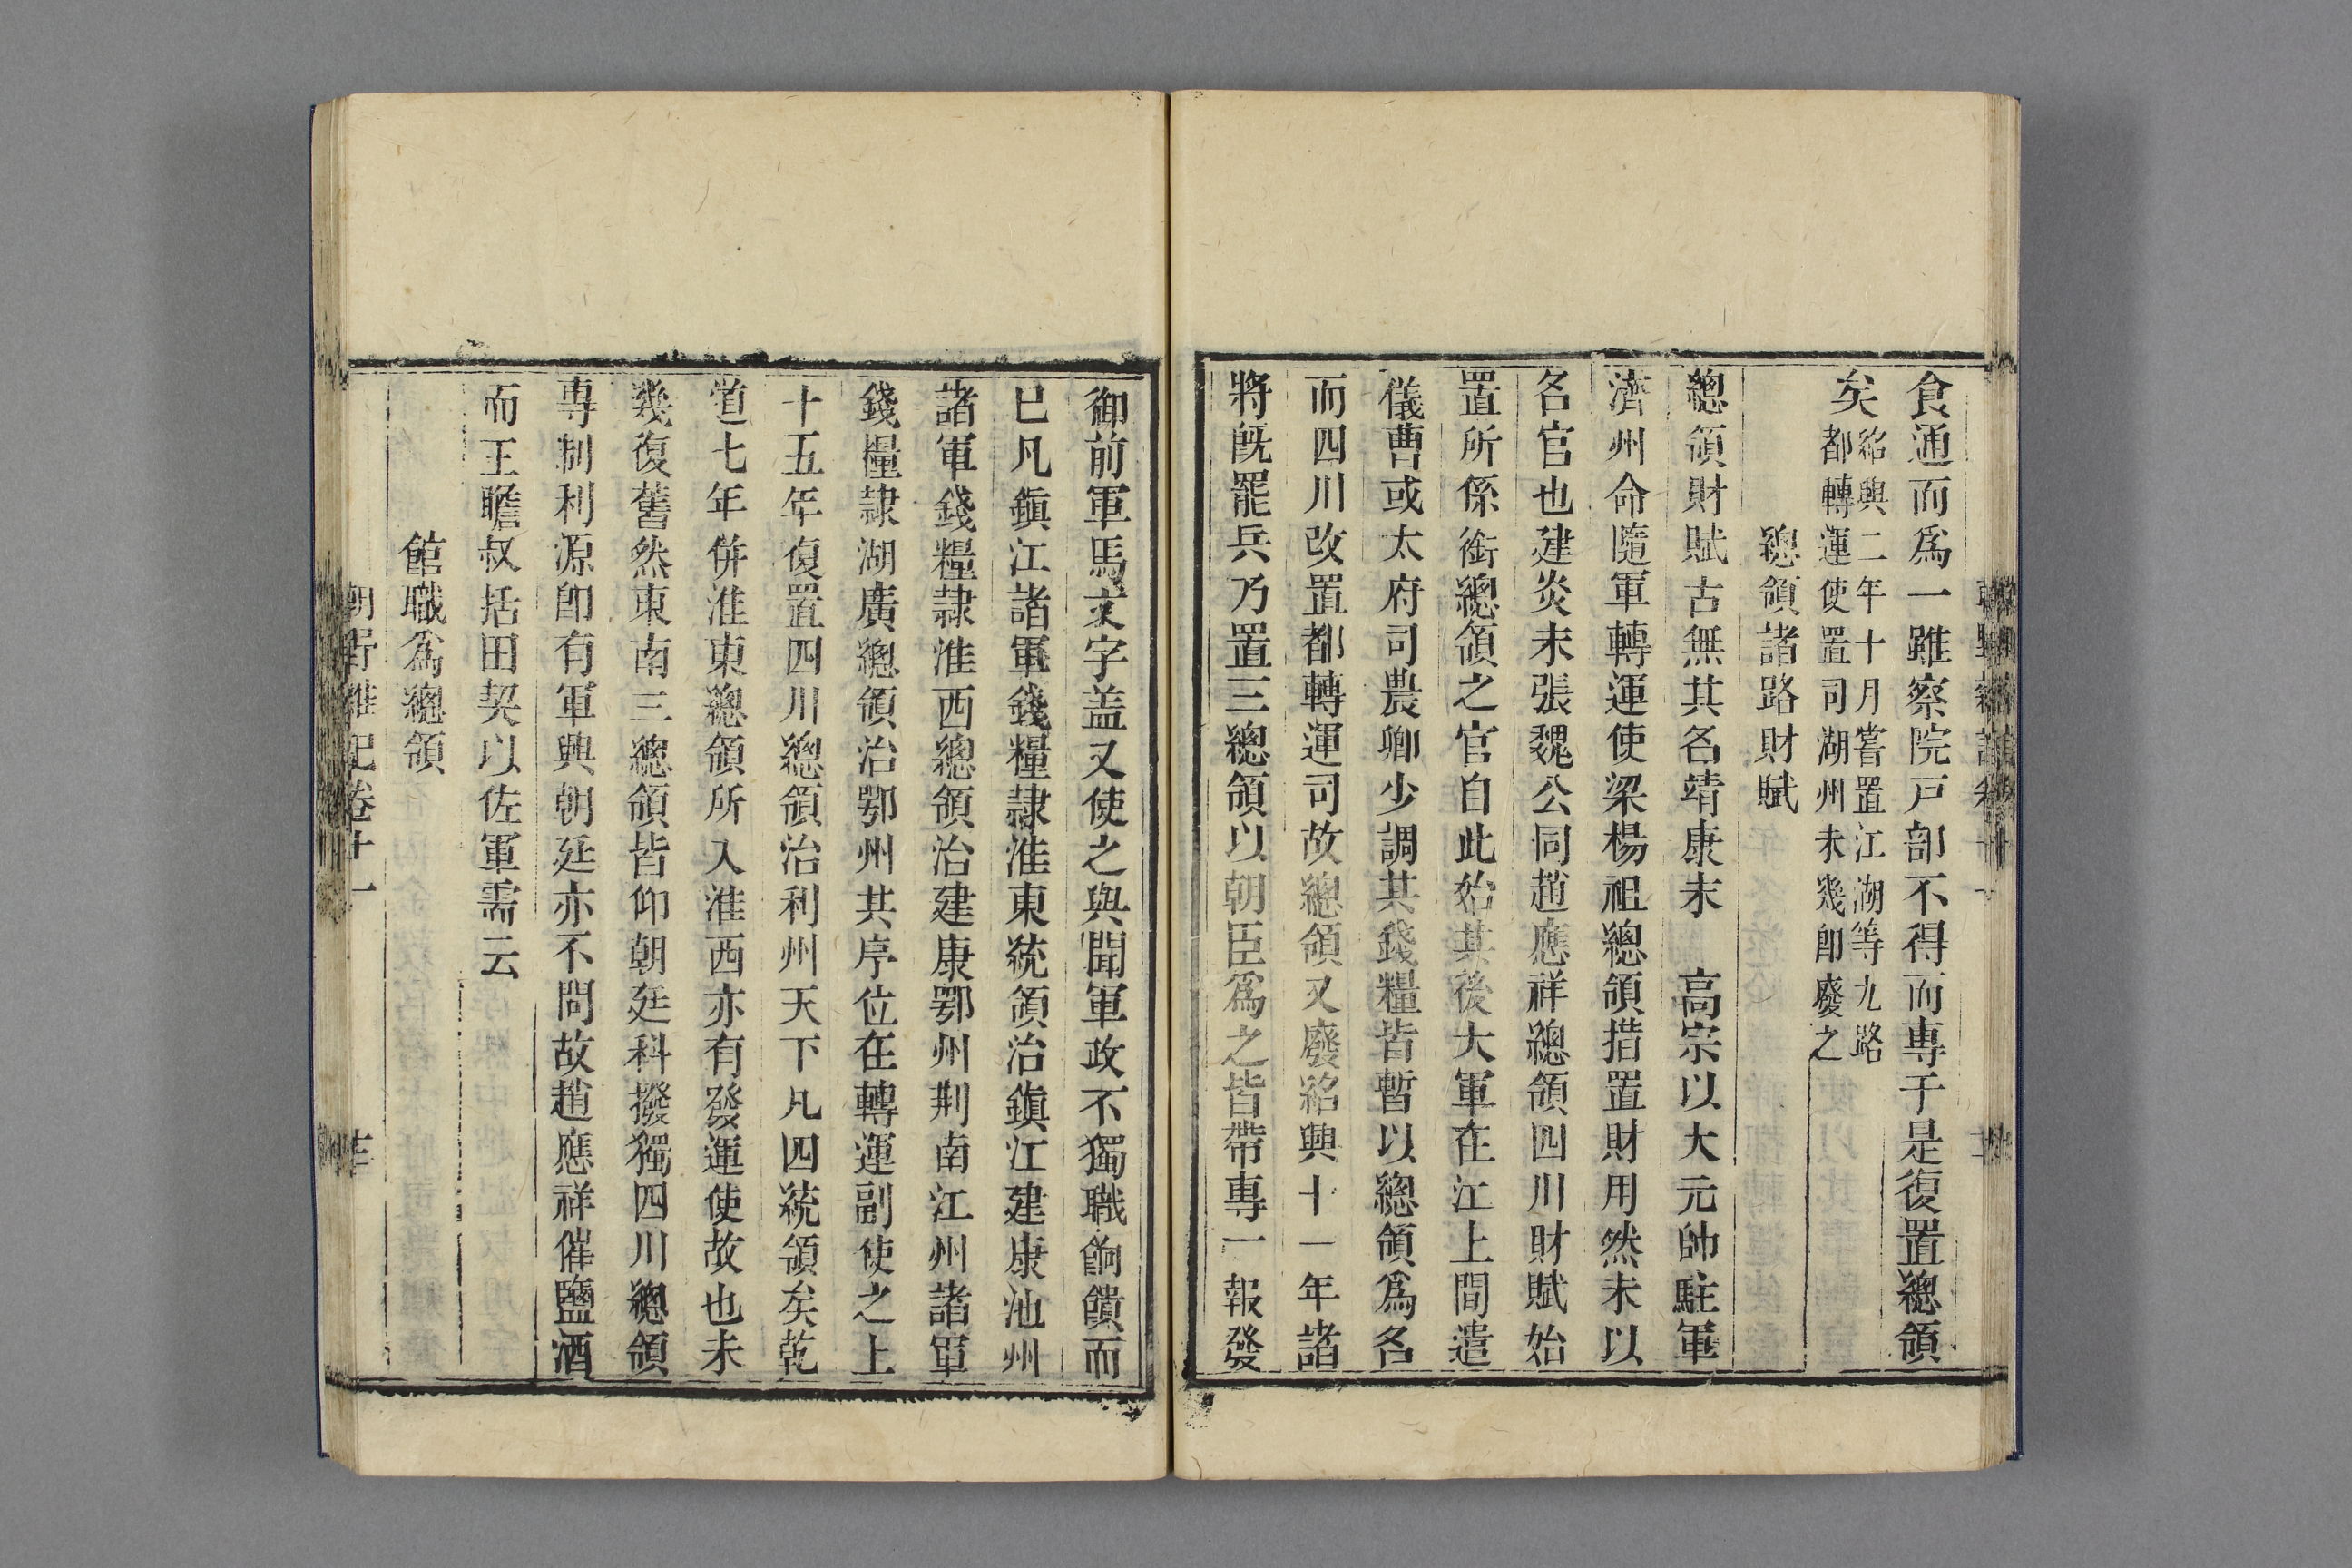 食通而爲一雖察院戸部不得而專于是復置總領
矣紹興二年十月嘗置江湖等九路
都轉運使置司湖州未幾卽廢之
總領諸路財賦
總領財賦古無其名靖康末　高宗以大元帥駐軍
濟州命隨軍轉運使梁楊祖總領措置財用然未以
名官也建炎末張魏公同趙應祥總領四川財賦始
置所係銜總領之官自此始其後大軍在江上間遣
儀曹或太府司農卿少調其錢糧皆暫以總領爲名
而四川改置都轉運司故總領又廢紹興十一年諸
將旣罷兵乃置三總領以朝臣爲之皆帶專一報發
御前軍馬文字盖又使之與聞軍政不獨職餉饋而
已凡鎭江諸軍錢糧隷淮東統領治鎭江建康池州
諸軍錢糧隷淮西總領治建康鄂州荆南江州諸軍
錢糧隷湖廣總領治鄂州其序位在轉運副使之上
十五年復置四川總領治利州天下凡四統領矣乾
道七年併淮東總領所入淮西亦有發運使故也未
幾復舊然東南三總領皆仰朝廷科撥獨四川總領
專制利源卽有軍興朝廷亦不問故趙應祥催鹽酒
而王瞻叔括田契以佐軍需云
館職爲總領
朝野雜記卷十一